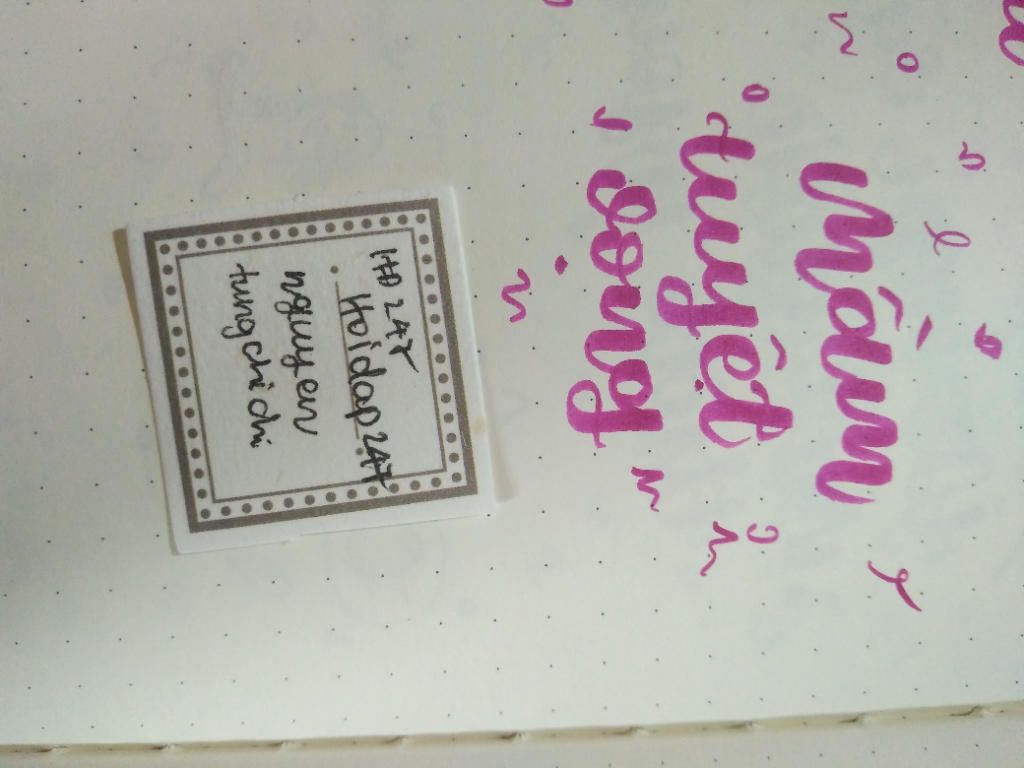 Mấm
tuyệt
vọng
HD 247
Hoidap247
nguyen
tungchichi